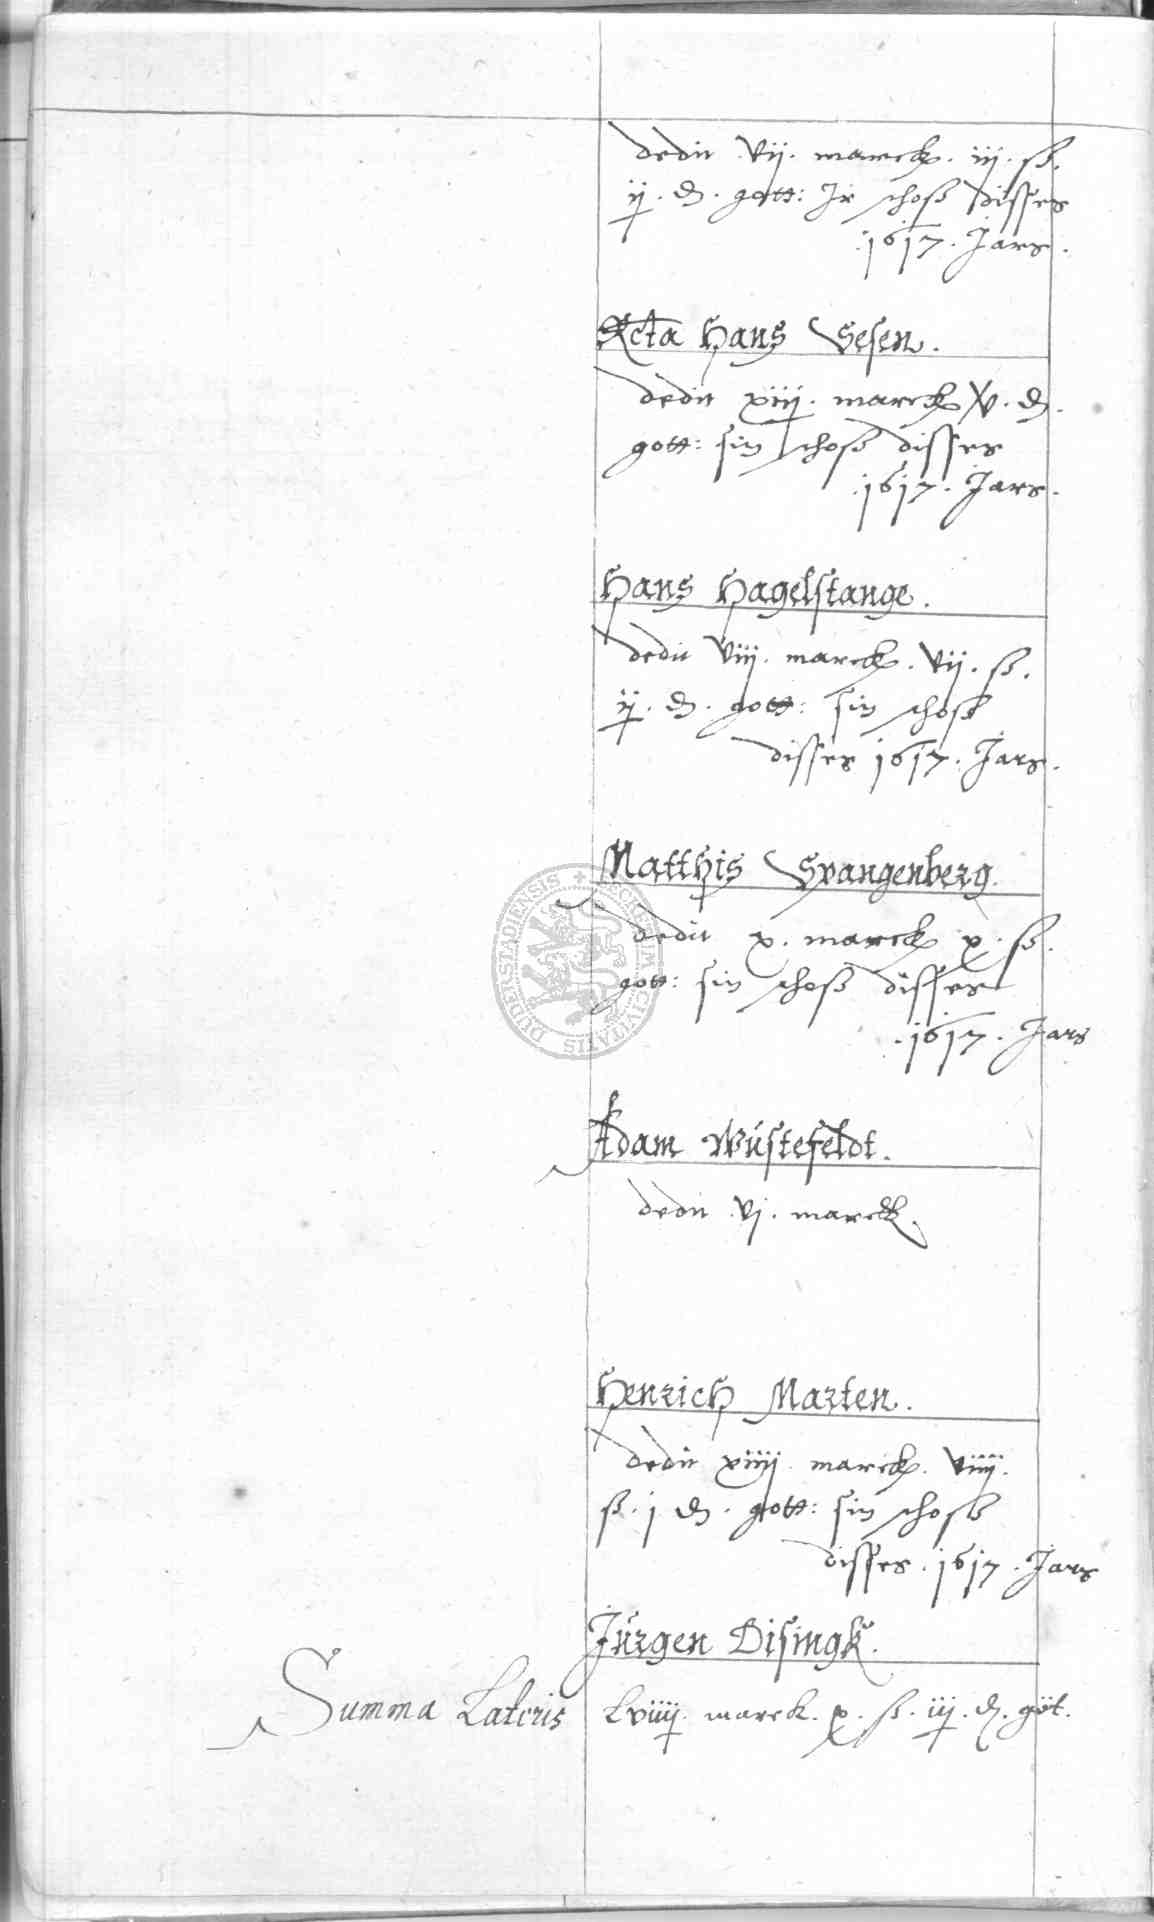 dedit .vij. marck. iij. ß.
ij. d. gott: Ir schoß disses
.1617. Jars.
Acta Hans Sesen.
dedit xiij. marck v. d.
gott: sin schoß disses
.1617. Jars.
Hans Hagelstange.
dedit viij. marck. vij. ß.
ij. d. gott: sin schoß
disses 1617. Jars.
Matthis Spangenberg.
dedit x. marck x. ß.
gott: sin schoß disses
.1617. Jars
Adam Wüstefeldt.
dedit .vj. marck.
Henrich Marten.
dedit xiiij marck. viiij.
ß. j d. gott: sin schoß
disses .1617. Jars
Jürgen Disingk.
Summa Lateris Lviiij. marck. x. ß. iij. d. göt.
SIGILLUM CIVITATIS DUDERSTADIENSIS